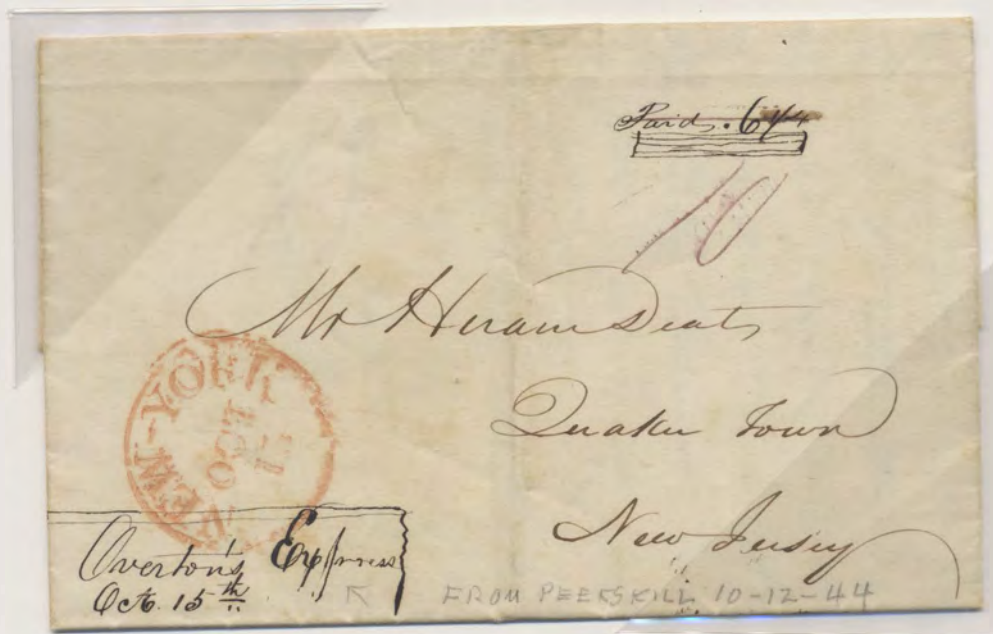 Paid. 6 1/4
10
Mr Hiram Deats
Quaker Town
New Jersey
NEW-YORK
OCT
15
Overton's Express
Oct. 15th
FROM PEEKSKILL 10-12-44